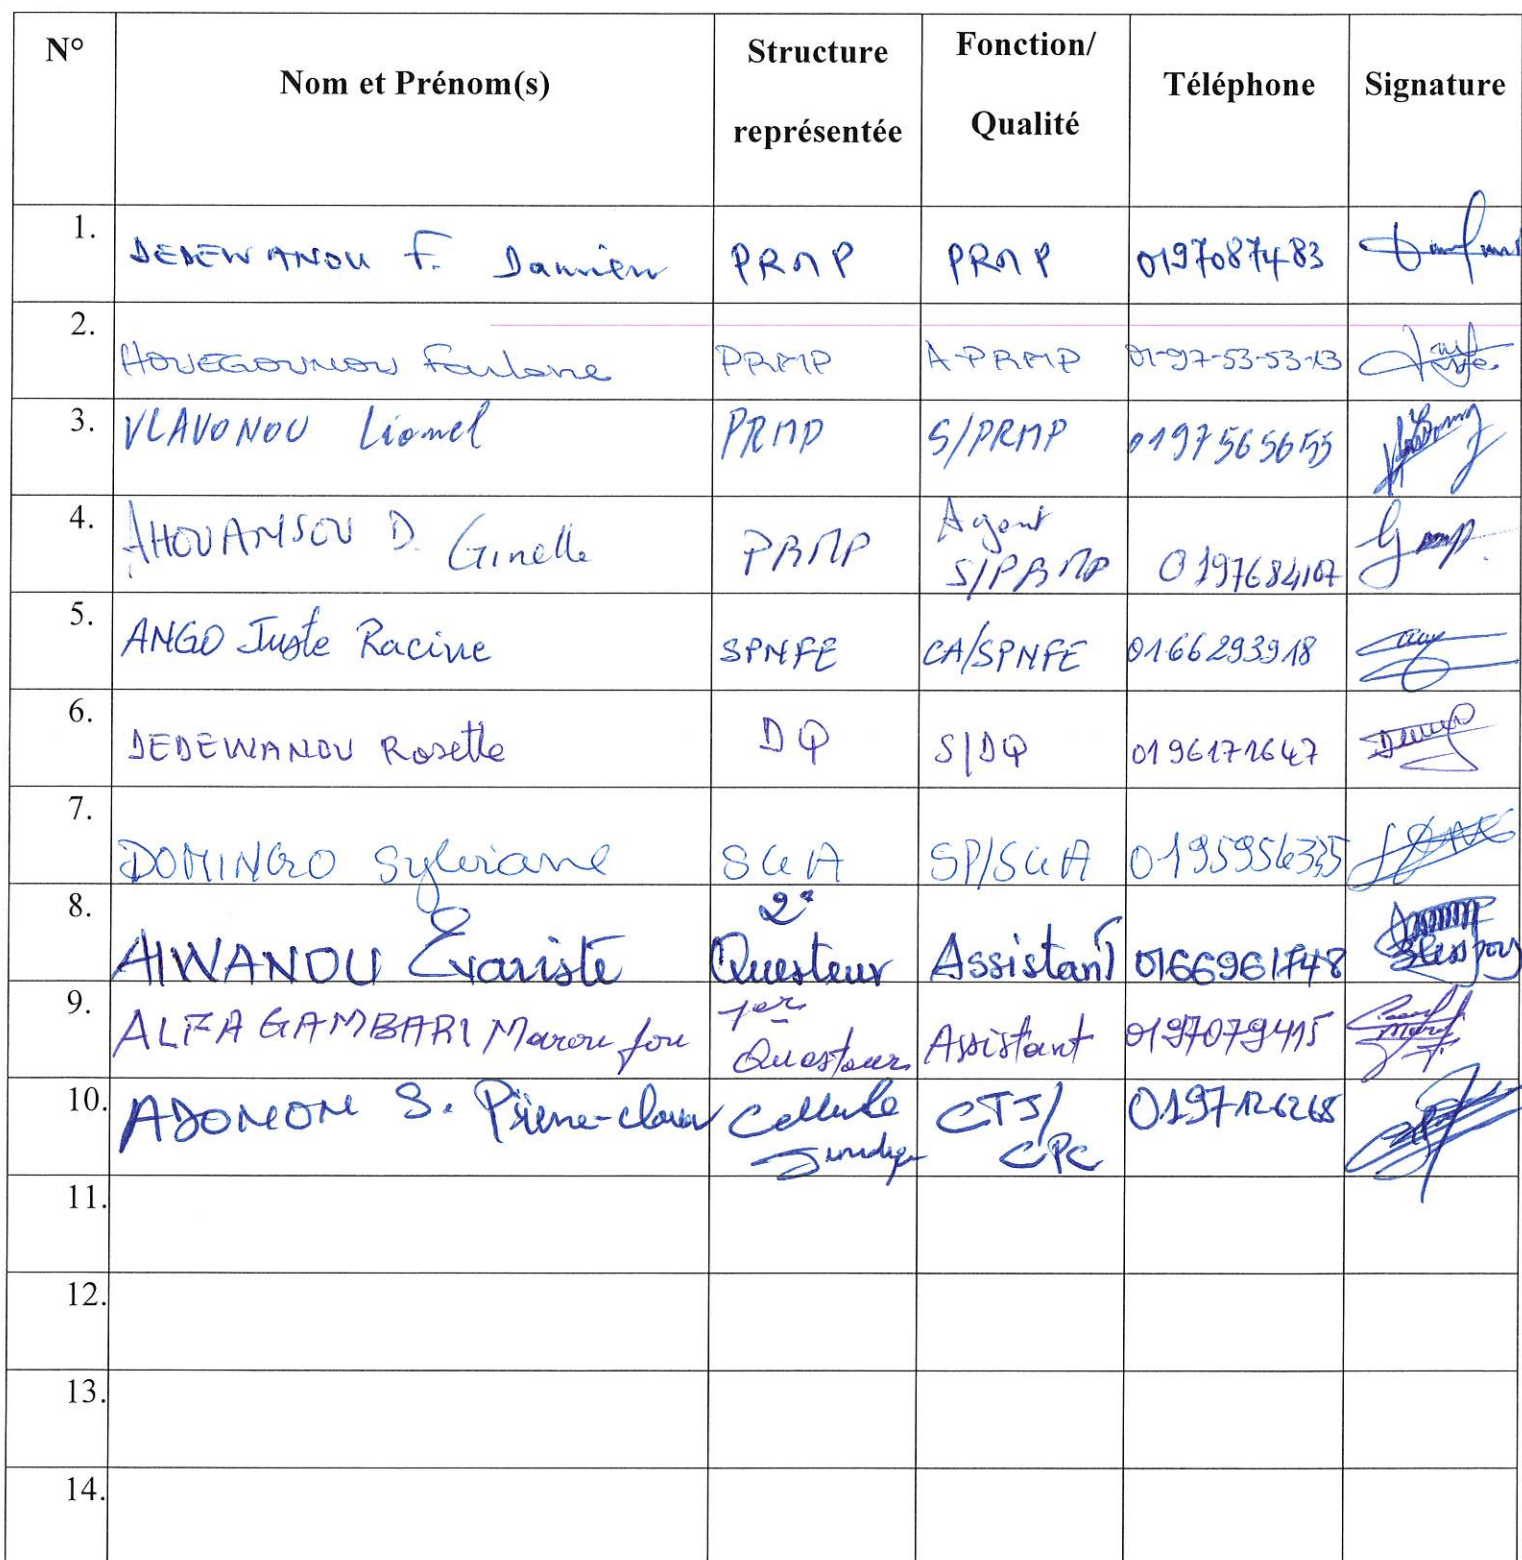 N° Nom et Prénom(s) Structure représentée Fonction/ Qualité Téléphone Signature
1. DEDEWANOU F. Damien PRMP PRMP 0197087483
2. HOUEGOUNOU PRMP A-PRMP 01-97-53-53-13
3. VLAVONOU Lionel PRMP S/PRMP 0197565655
4. AHOUANSOU D. Ginelle PRMP Agent S/PRMP 0197684107
5. ANGO Juste Racine SPNFE CA/SPNFE 0166293918
6. DEDEWANOU Rosette DQ S/DQ 0196171647
7. DOMINGO Sylviane SGA SP/SGA
8. AIWANOU Évariste 2e Questeur Assistant 0166961748
9. ALFA GAMBARI Marou fou 1er Questeur Assistant 0197079415
10. ADONON S. Pierre-claver Cellule Juridiq CTJ/ CPC 0197126268
11.
12.
13.
14.